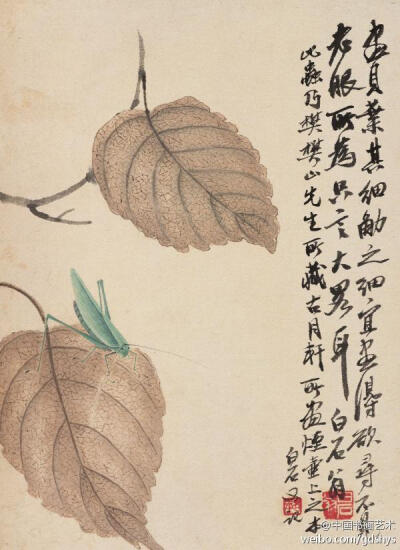 畫貝葉其細觔之細宜畫得欲尋不見
老眼所為只言大畧耳 白石翁
此蟲乃樊樊山先生所藏古月軒所畫煙壺上之本
白石又記
@中国书画艺术
weibo.com/gdshys